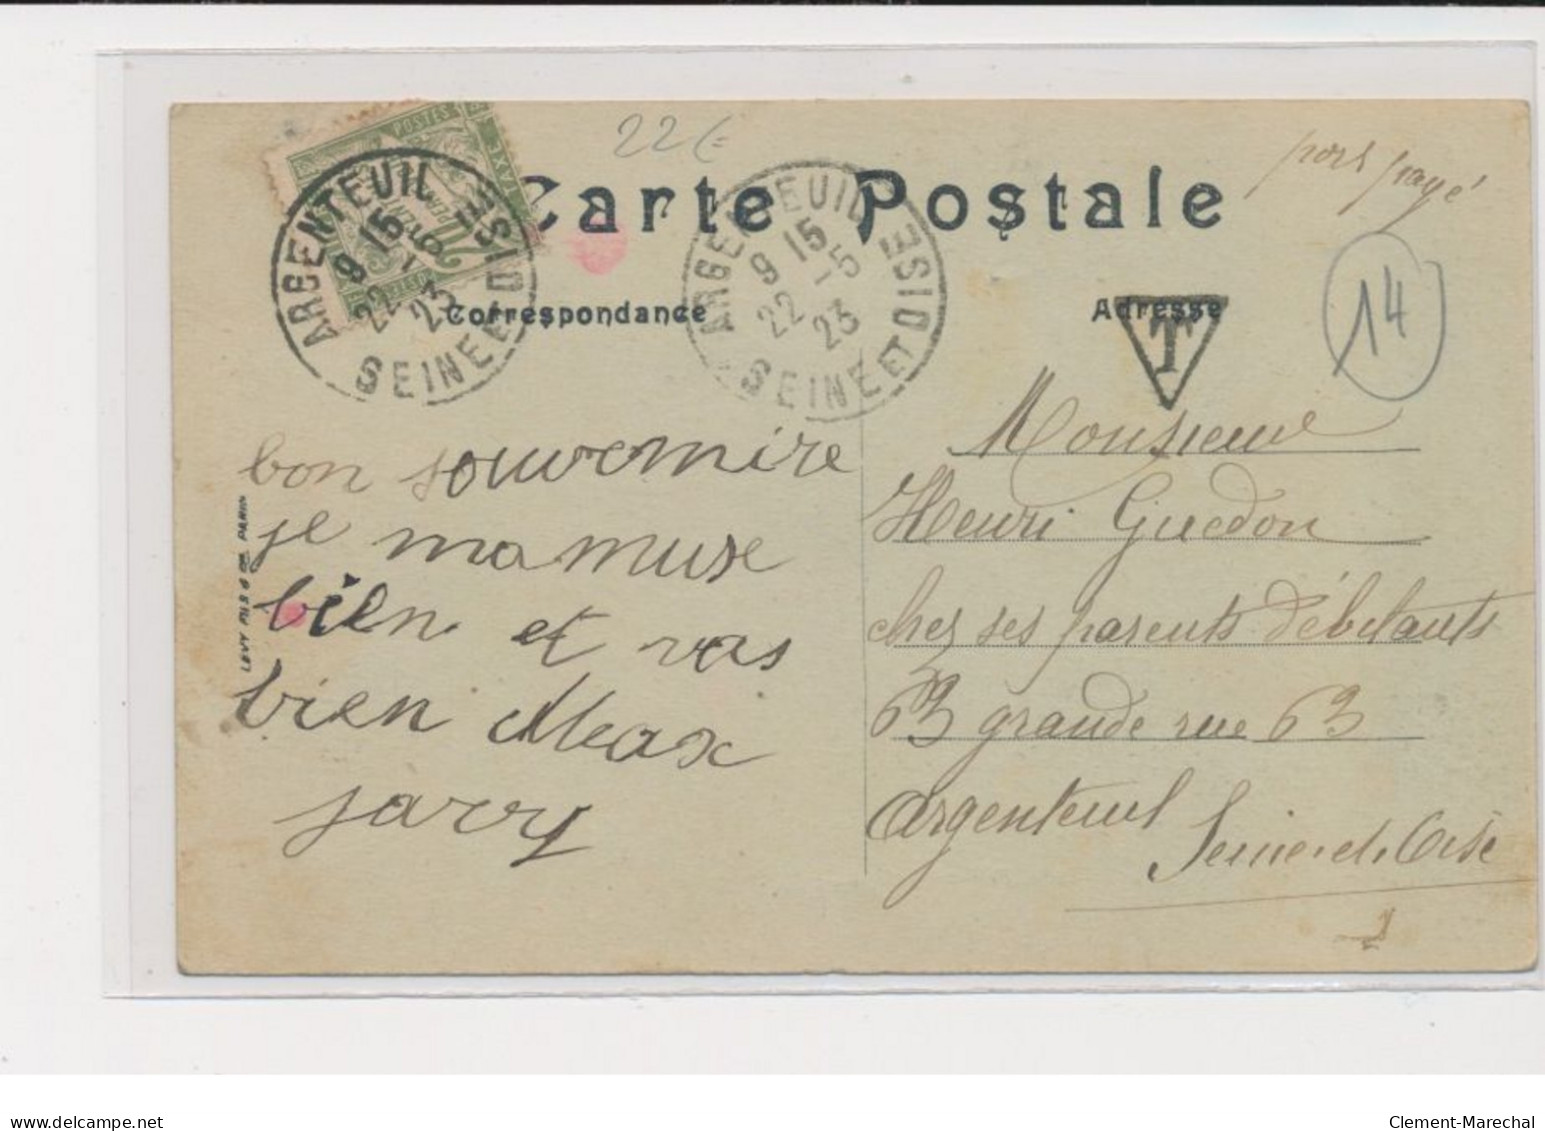 22€
port payé
Carte Postale
POSTES
ARGENTEUIL
9 15
22 - 5
23
SEINE ET OISE
ARGENTEUIL
9 15
22 - 5
23
SEINE ET OISE
Correspondance
Adresse
T
14
bon souvenire
je mamuse
bien et vas
bien Max
jarry
LEVY FILS & Cie PARIS
Monsieur
Henri Guedon
chez ses parents débitants
63 grande rue 63
Argenteuil
Seine et Oise
delcampe.net
Clement-Marechal